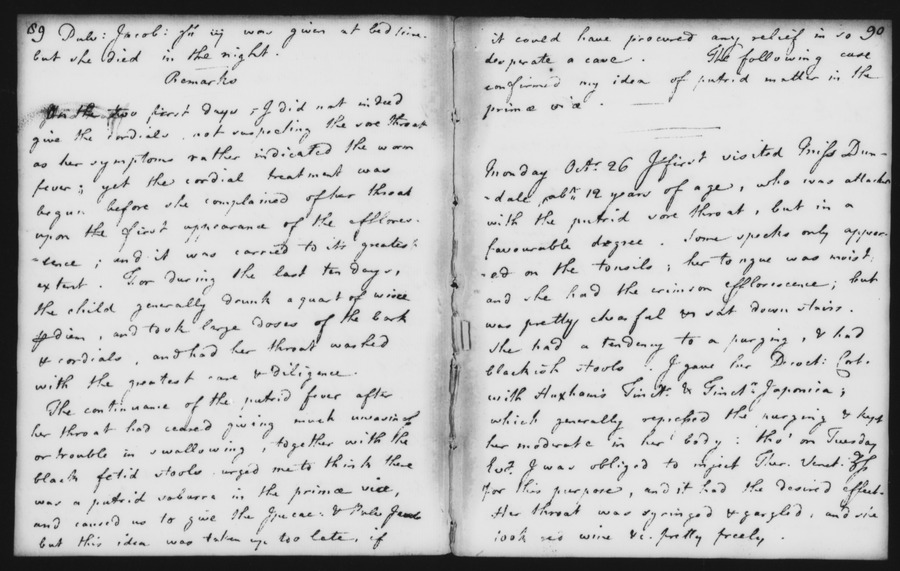 89
Pulv: Jacob: iij was given at bed time.
but she died in the night.
Remarks
In the two first days, I did not indeed
give the cordials not suspecting the sore throat
as her symptoms rather indicated the worm
fever; yet the cordial treatment was
begun before she complained of her throat
upon the first appearance of the efflores-
-cence; and it was carried to its greatest
extent. For during the last ten days,
the child generally drank a quart of wine
diem, and took large doses of the bark
& cordials, and had her throat washed
with the greatest care & diligence.
The continuance of the putrid fever after
her throat had ceased giving much uneasiness
or trouble in swallowing, together with the
black fetid stools urged me to think there
was a putrid saburra in the primæ viæ,
and caused us to give the Ipecac. & Pulv Jacob
but this idea was taken up too late, if
90
it could have procured any relief in so
desperate a case. The following case
confirmed my idea of putrid matter in the
primæ viæ.
Monday Octr. 26 I first visited Miss Dun-
-dale 12 years of age, who was attacked
with the putrid sore throat, but in a
favourable degree. Some specks only appear-
-ed on the tonsils; her tongue was moist;
and she had the crimson efflorescence; but
was pretty chearful & sat down stairs.
She had a tendency to a purging, & had
blackish stools. I gave her Decoct: Cort.
with Huxham's Tinct. & Tinct. Japonica;
which generally repressed the purging & kept
her moderate in her body: tho' on Tuesday
I was obliged to inject Ther. Venet:
for this purpose, and it had the desired effect.
Her throat was syringed & gargled, and she
took red wine &c. pretty freely.